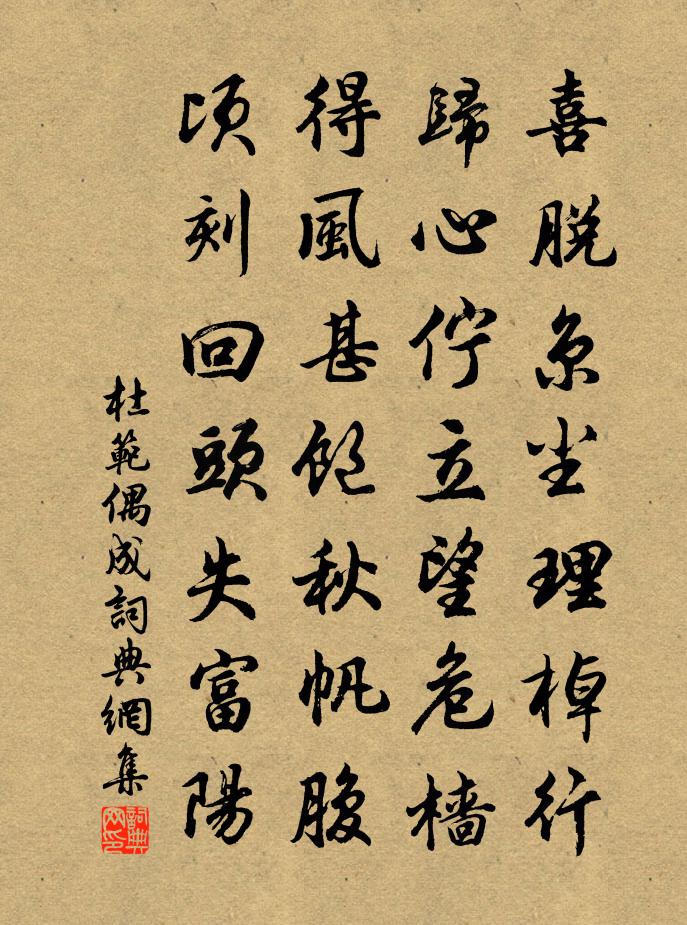 喜脫京塵理棹行
歸心佇立望危檣
得風甚飽秋帆腹
頃刻回頭失富陽
杜範偶成詞典網集
詞典網印